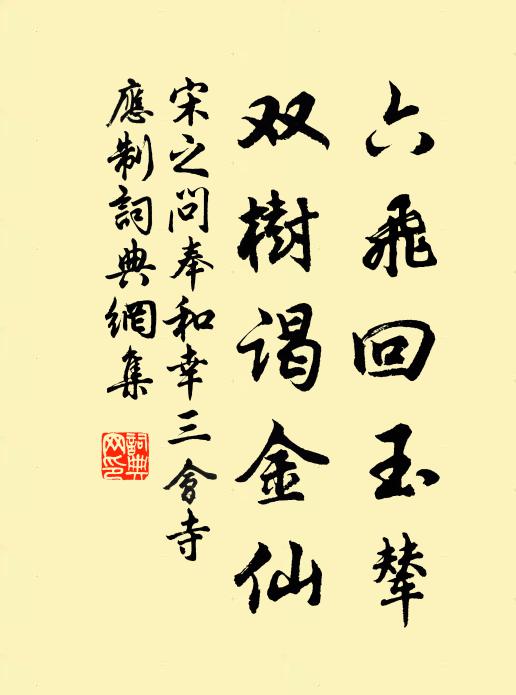 六飛回玉輦
双樹謁金仙
宋之问奉和幸三會寺
應制詞典網集
詞典
网印